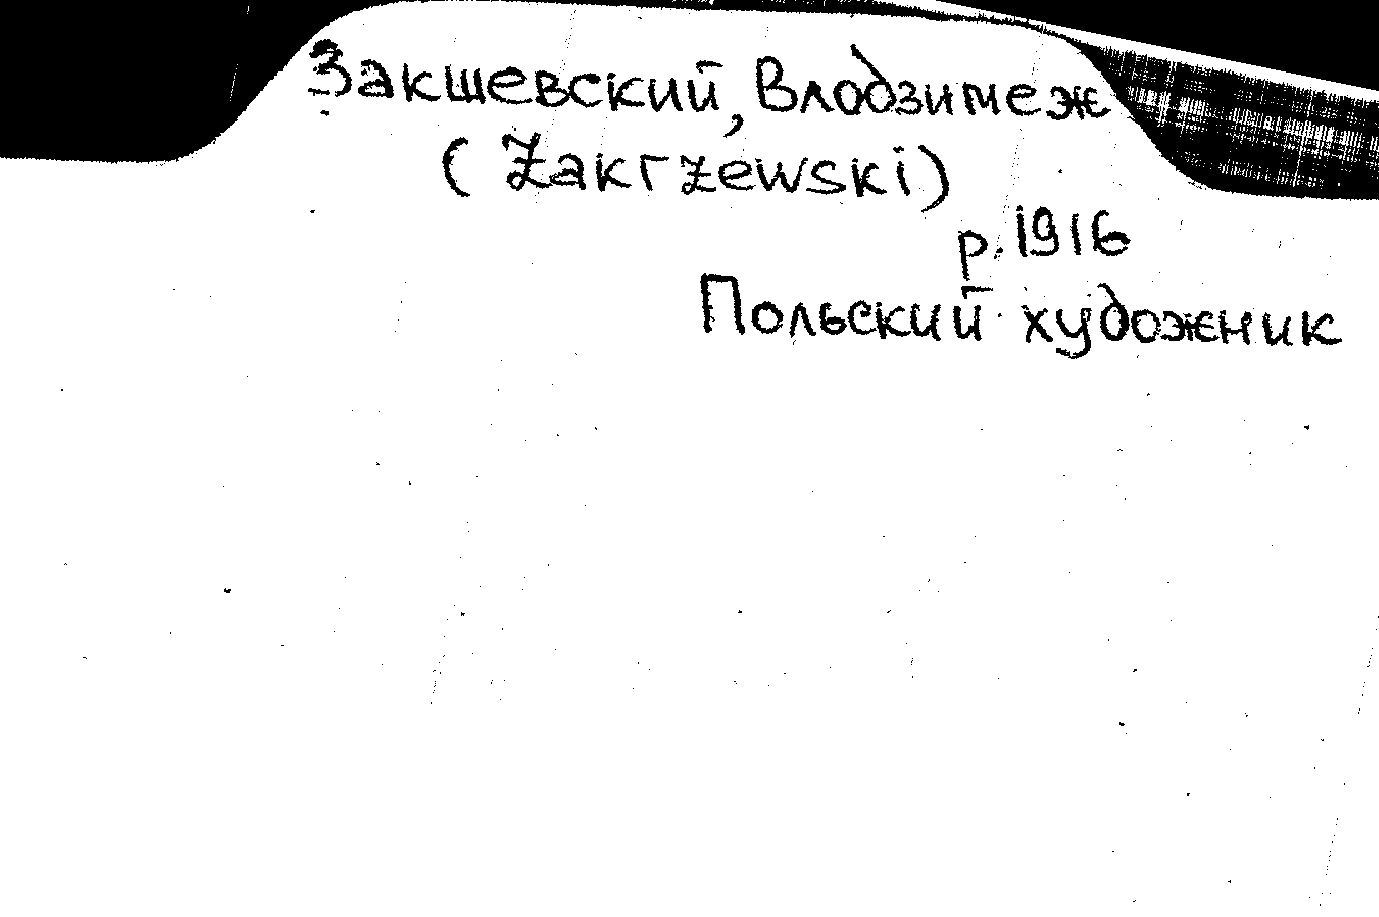 Закшевский, Влодзимеж
(Zakrzewski)
р. 1916
Польский художник